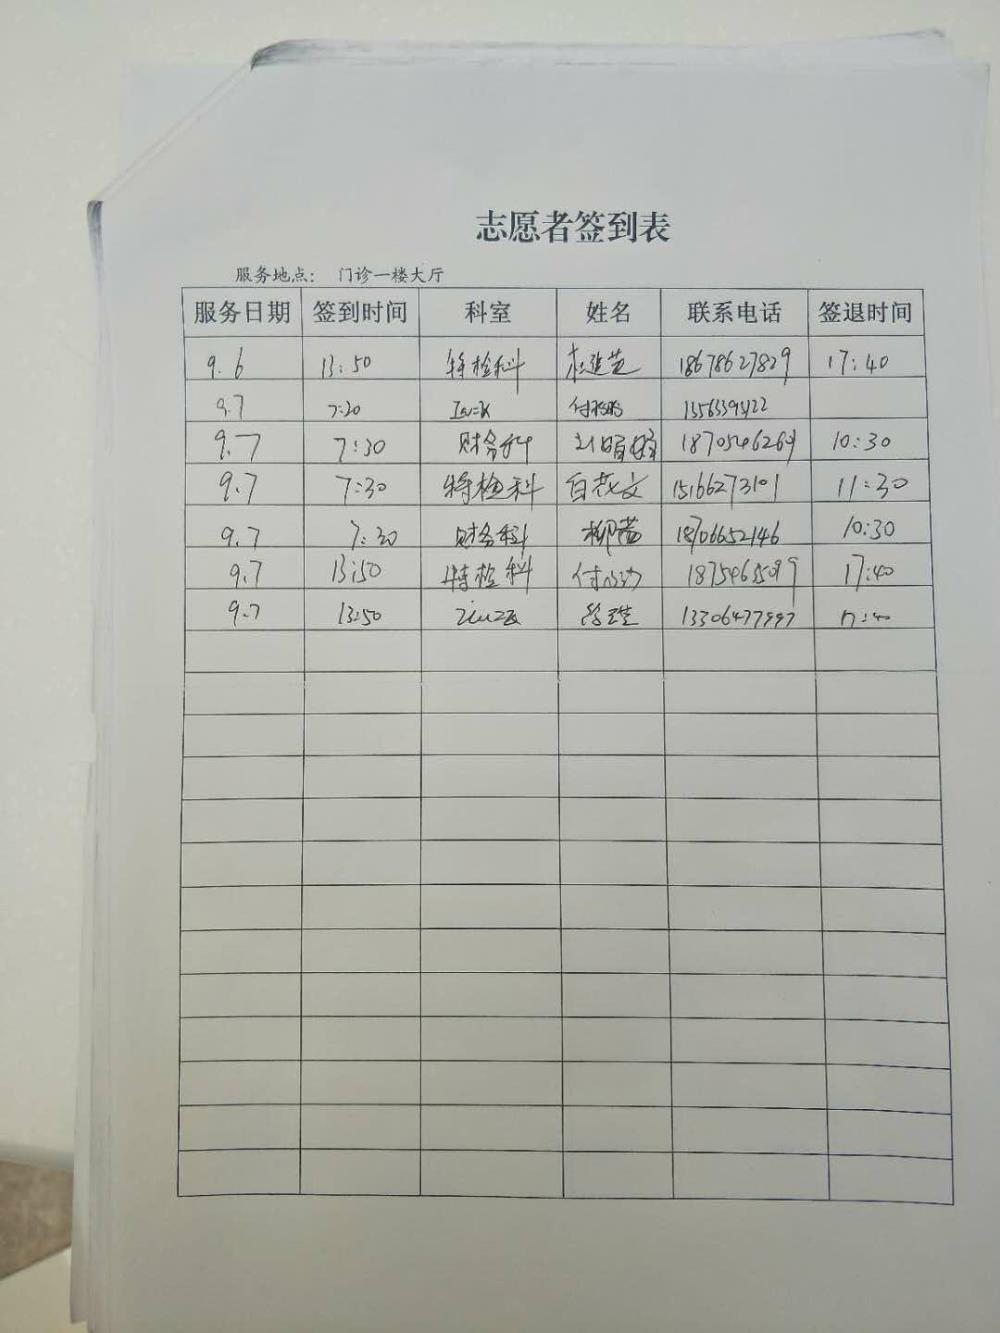 志愿者签到表
服务地点： 门诊一楼大厅
服务日期 签到时间 科室 姓名 联系电话 签退时间
9.6 13:50 特检科 18678627829 17:40
9.7 7:20
9.7 7:30 财务科 10:30
9.7 7:30 特检科 白花文 15166273101 11:30
9.7 7:30 财务科 柳茜 18706652146 10:30
9.7 13:50 特检科 17:40
9.7 13:50 17:40